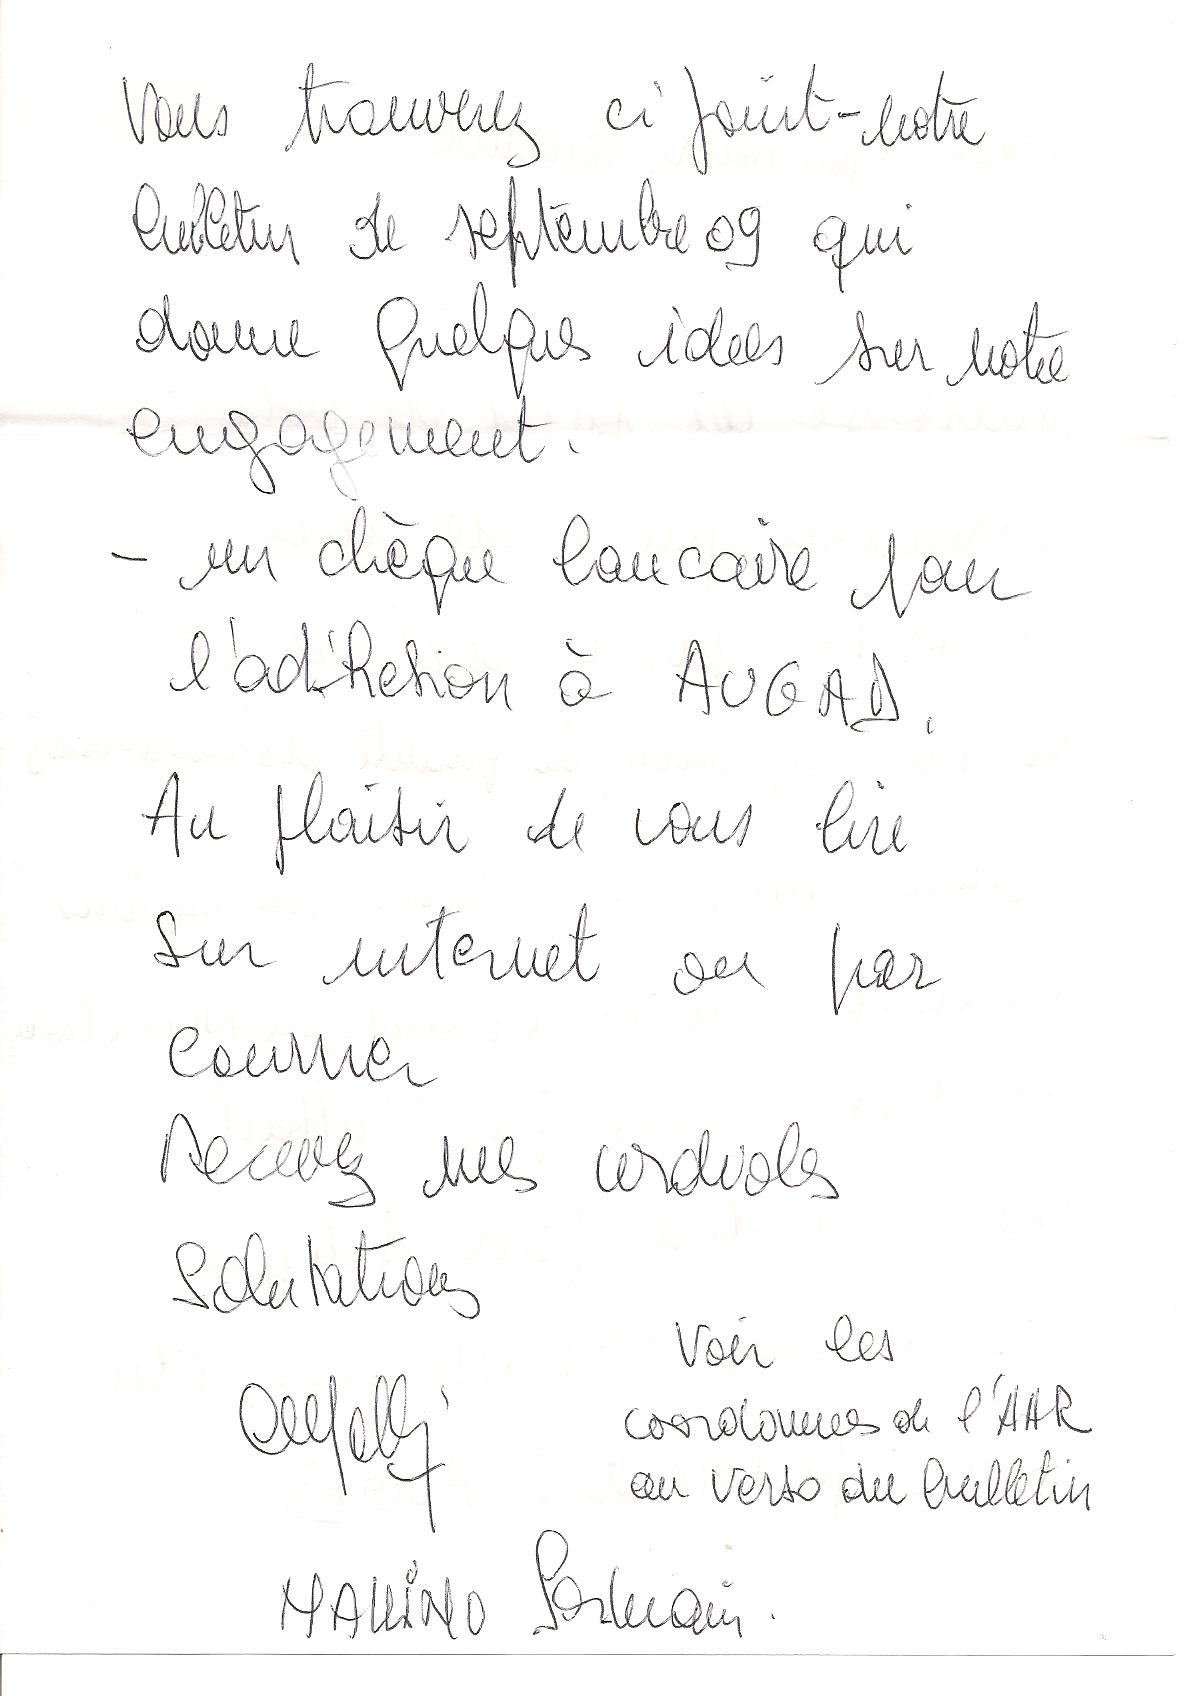 Vous trouverez ci joint notre
bulletin de septembre 09 qui
donne quelques idées sur notre
engagement.
- un chèque bancaire pour
l'adhésion à AUGAD.
Au plaisir de vous lire
sur internet ou par
courrier
Recevez mes cordiales
Salutations
Voir les
coordonnées de l'AAR
au verso du bulletin
Germain.